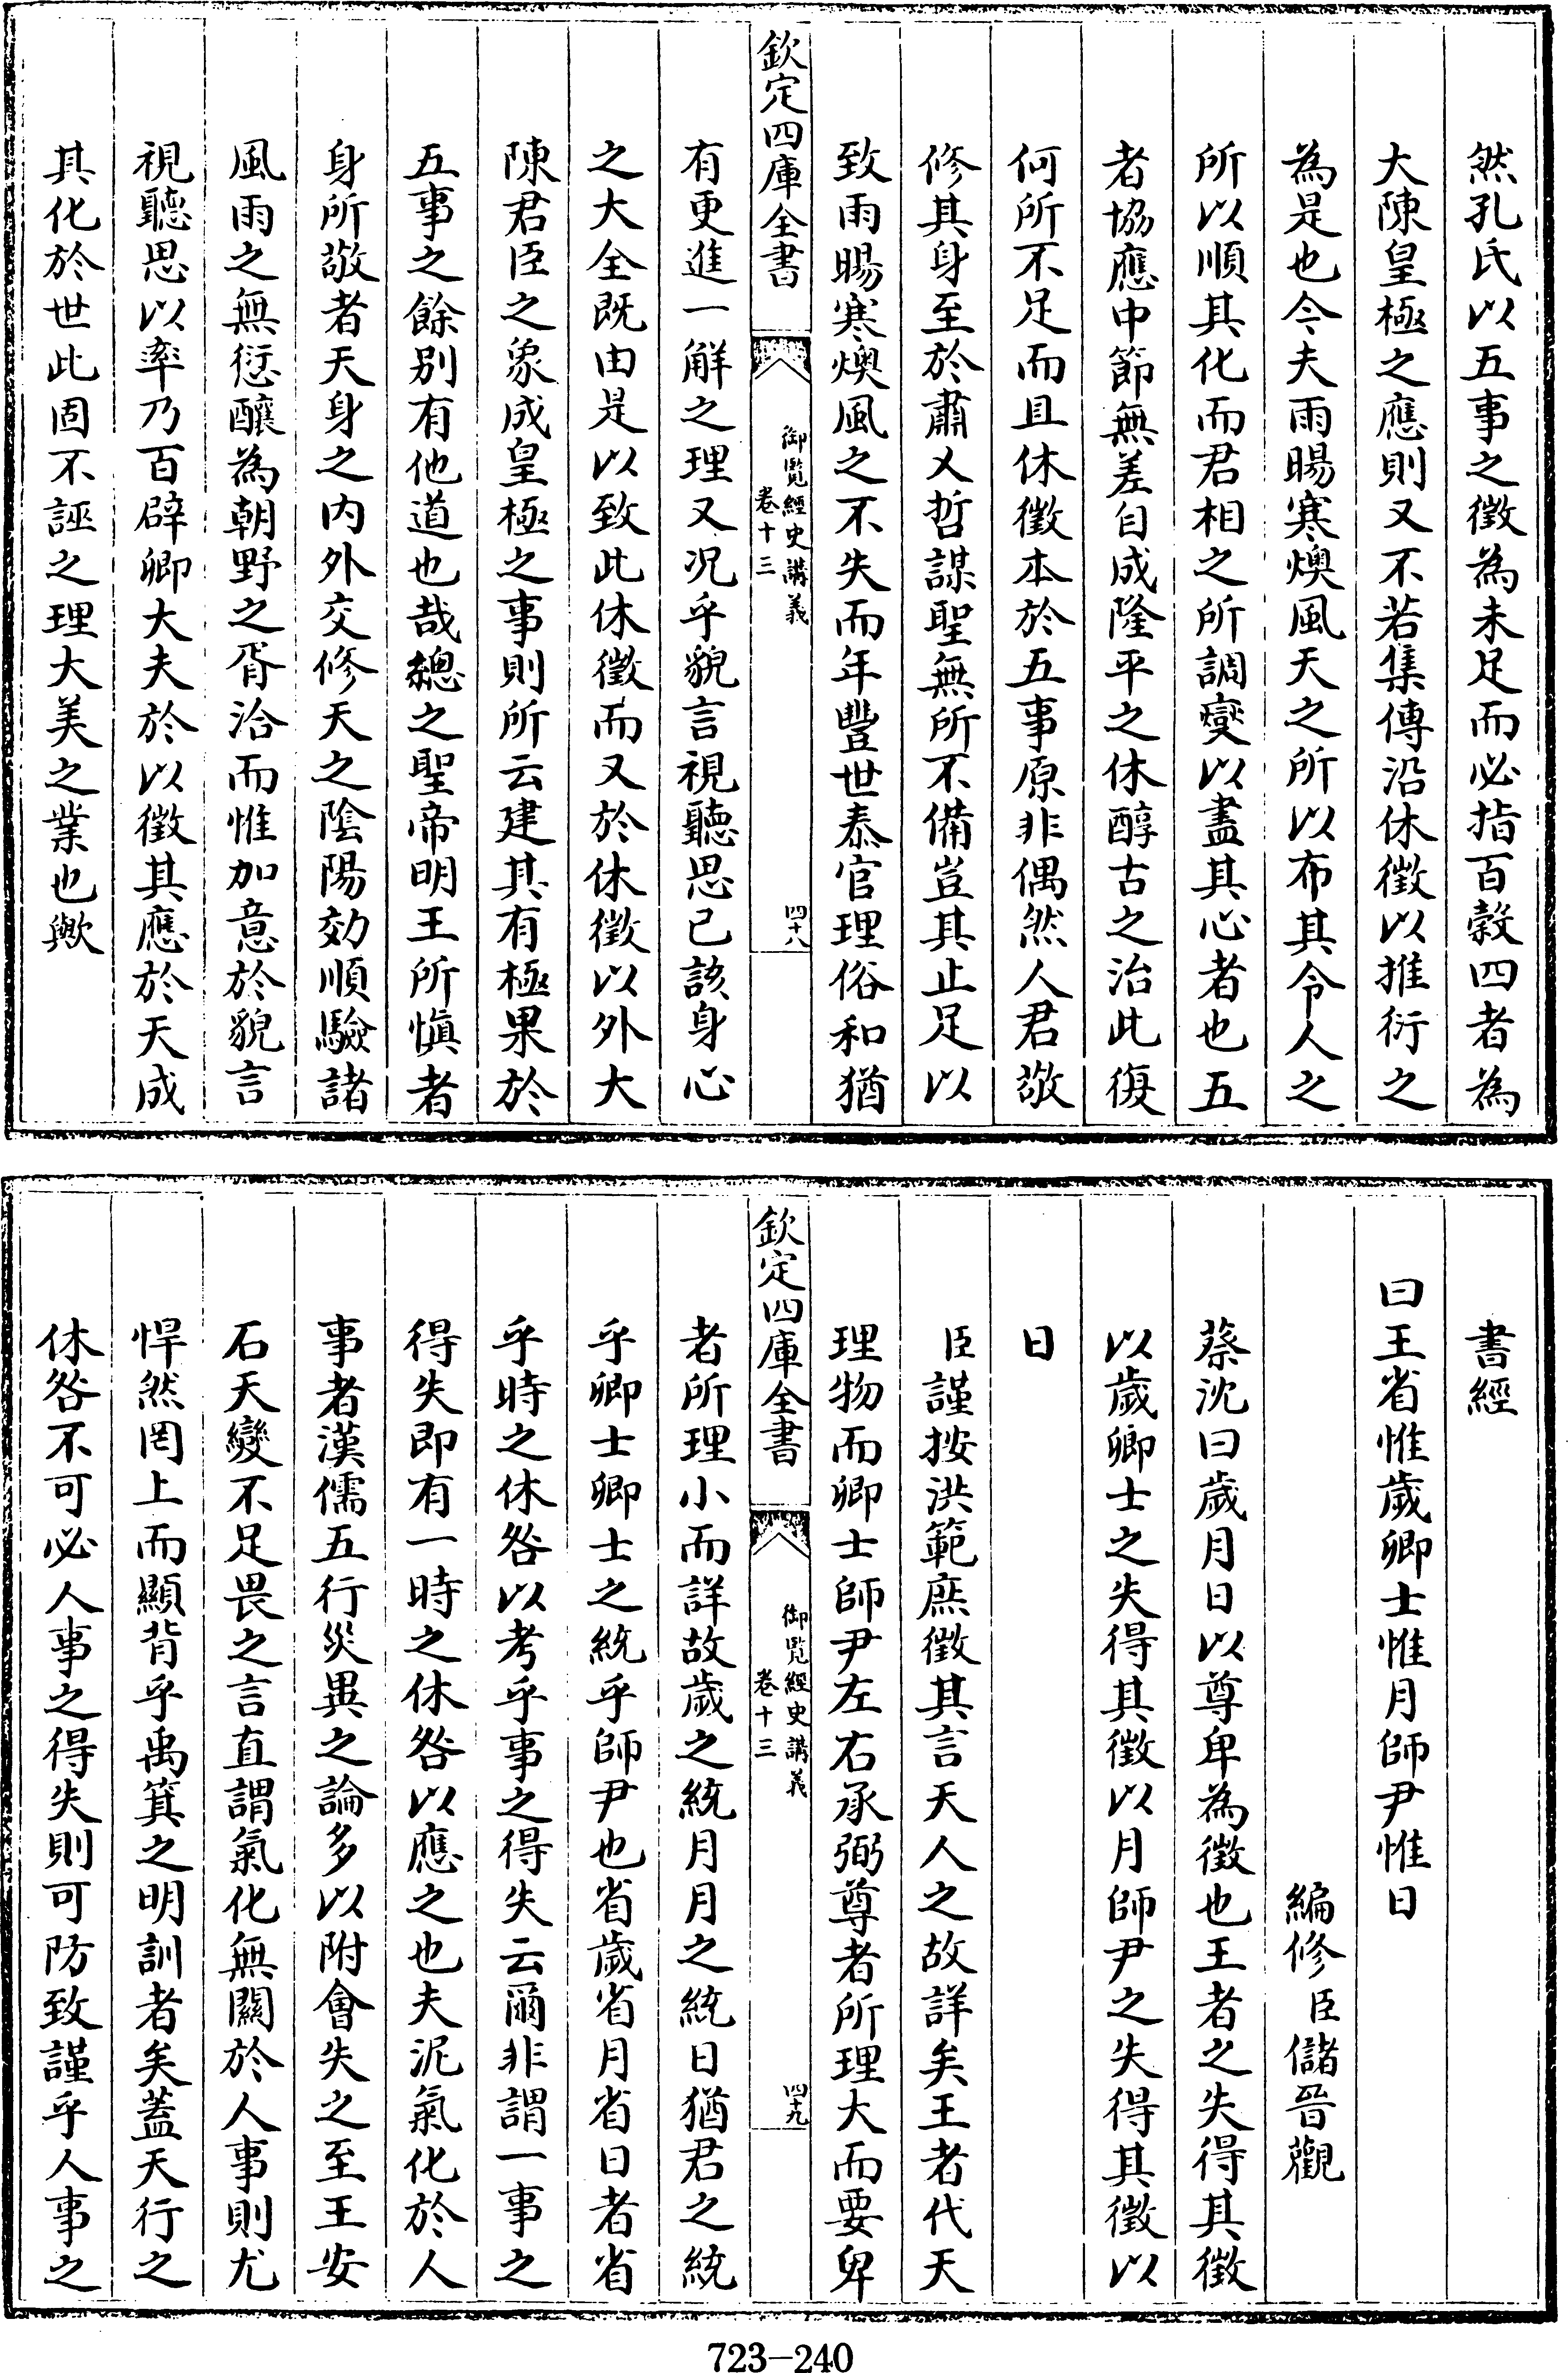 然孔氏以五事之徵為未足而必指百穀四者為
大陳皇極之應則又不若集傳沿休徵以推衍之
為是也今夫雨暘寒燠風天之所以布其令人之
所以順其化而君相之所調燮以盡其心者也五
者協應中節無差自成隆平之休醇古之治此復
何所不足而且休徵本於五事原非偶然人君敬
修其身至於肅乂哲謀聖無所不備豈其止足以
致雨暘寒燠風之不失而年豐世泰官理俗和猶
欽定四庫全書
御覽經史講義
卷十三
四十八
有更進一解之理又况乎貌言視聽思已該身心
之大全既由是以致此休徵而又於休徵以外大
陳君臣之象成皇極之事則所云建其有極果於
五事之餘别有他道也哉總之聖帝明王所愼者
身所敬者天身之內外交修天之陰陽効順驗諸
風雨之無愆釀為朝野之胥洽而惟加意於貌言
視聽思以率乃百辟卿大夫於以徵其應於天成
其化於世此固不誣之理大美之業也歟
書經
曰王省惟歲卿士惟月師尹惟日
編修臣儲晉觀
蔡沈曰歲月日以尊卑為徵也王者之失得其徵
以歲卿士之失得其徵以月師尹之失得其徵以
日
臣謹按洪範庶徵其言天人之故詳矣王者代天
理物而卿士師尹左右承弼尊者所理大而要卑
欽定四庫全書
御覽經史講義
卷十三
四十九
者所理小而詳故歲之統月月之統日猶君之統
乎卿士卿士之統乎師尹也省歲省月省日者省
乎時之休咎以考乎事之得失云爾非謂一事之
得失即有一時之休咎以應之也夫泥氣化於人
事者漢儒五行災異之論多以附會失之至王安
石天變不足畏之言直謂氣化無關於人事則尤
悍然罔上而顯背乎禹箕之明訓者矣蓋天行之
休咎不可必人事之得失則可防致謹乎人事之
723-240